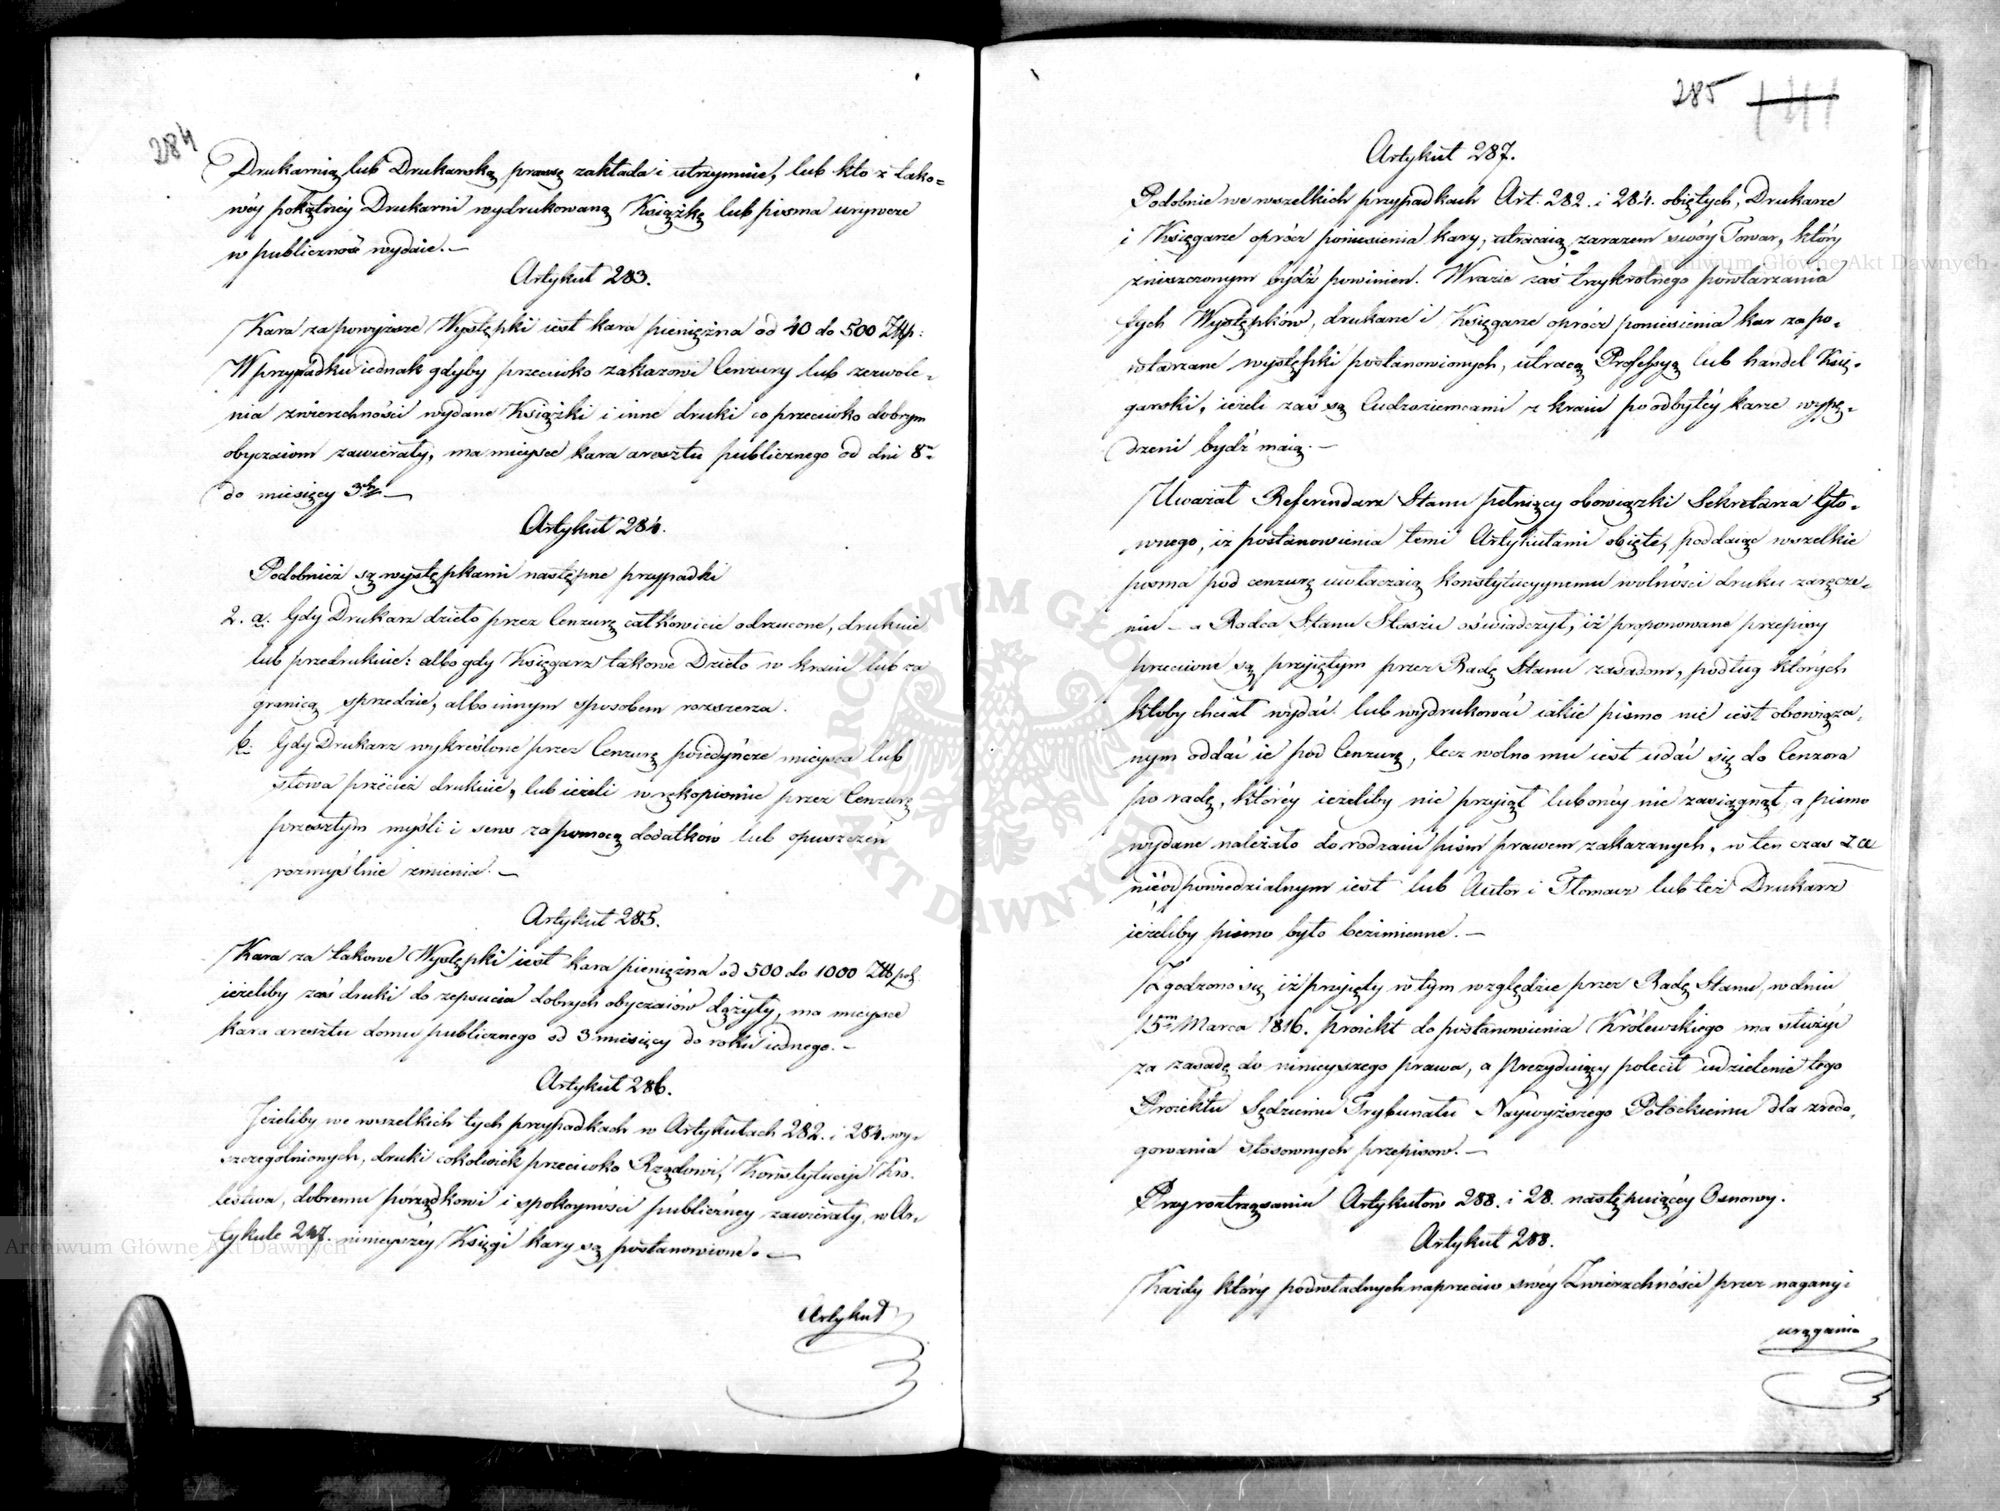 284
Drukarnią lub Drukarską prasę zakłada i utrzymuie, lub kto z tako=
wéy pokątnéy Drukarni wydrukowaną Książkę lub pisma urywcze
w publiczność wydaie. —
Artykuł 283.
Kara za powyższe Występki iest kara pieniężna od 40 do 500 Złłp:
W przypadku iednak gdyby przeciwko zakazowi Cenzury lub zezwole=
nia zwierzchności wydane Książki i inne druki co przeciwko dobrym
obyczaiom zawierały, ma mieysce kara aresztu publicznego od dni 8m
do miesięcy 3ch —
Artykuł 284.
Podobnież są występkami następne przypadki
2. a. Gdy Drukarz dzieło przez Cenzurę całkowicie odrzucone, drukuie
lub przedrukuie: albo gdy Księgarz takowe Dzieło w kraiu lub za
granicą sprzedaie, albo innym sposobem rozszerza.
b. Gdy Drukarz wykreślone przez Cenzurę poiedyńcze mieysca lub
słowa przecież drukuie, lub ieżeli w rękopismie przez Cenzurę
przeszłym myśli i sens za pomocą dodatków lub opuszczeń
rozmyślnie zmienia. —
Artykuł 285.
Kara za takowe Występki iest kara pieniężna od 500 do 1000 Złł pol.
ieżeliby zaś druki do zepsucia dobrych obyczaiów dążyły, ma mieysce
kara aresztu domu publicznego od 3 miesięcy do roku iednego. —
Artykuł 286.
Jeżeliby we wszelkich tych przypadkach w Artykułach 282. i 284. wy=
szczególnionych, druki cokolwiek przeciwko Rządowi, Konstytucyi Kró=
lestwa, dobremu porządkowi i spokoyności publicznéy zawierały, w Ar=
tykule 247. ninieyszéy Księgi kary są postanowione. —
Artykuł
285
Artykuł 287.
Podobnie we wszelkich przypadkach Art. 282. i 284. obiętych, Drukarze
i Księgarze oprócz poniesienia kary, utracaią zarazem swóy Towar, który
zniszczonym bydź powinien. W razie zaś trzykrotnego powtarzania
tych Występków, drukarze i Księgarze oprócz poniesienia kar za po=
wtarzane występki postanowionych, utracą Professyą lub handel Księ=
garski, ieżeli zaś są Cudzoziemcami z kraiu po odbytéy karze wypę=
dzeni bydź maią. —
Uważał Referendarz Stanu pełniący obowiązki Sekretarza Głó=
wnego, iż postanowienia temi Artykułami obięte, poddaiąc wszelkie
pisma pod cenzurę uwłaczaią konstytucyynemu wolności druku zaręcze=
niu — a Radca Stanu Staszic oświadczył, iż proponowane przepisy
przeciwne są przyiętym przez Radę Stanu zasadom, podług których
ktoby chciał wydać lub wydrukować iakie pismo nie iest obowiąza=
nym oddać ie pod Cenzurę, lecz wolno mu iest udać się do Cenzora
po radę, którey ieżeliby nie przyiął lub oney nie zasiągnął, a pismo
wydane należało do rodzaiu pism prawem zakazanych, w ten czas za
nie odpowiedzialnym iest lub Autor i Tłomacz lub też Drukarz
ieżeliby pismo było bezimienne. —
Zgodzono się iż przyięty w tym względzie przez Radę Stanu, w dniu
15m Marca 1816. Proiekt do postanowienia Królewskiego ma służyć
za zasadę do ninieyszego prawa, a Prezyduiący polecił udzielenie tego
Proiektu Sędziemu Trybunału Naywyższego Potockiemu dla zreda=
gowania stosownych przepisow. —
Przy roztrząsaniu Artykułów 288. i 28. następuiącéy Osnowy.
Artykuł 288.
Każdy który podwładnych naprzeciw swéy Zwierzchności przez nagany i
urągania
Archiwum Główne Akt Dawnych
Archiwum Główne Akt Dawnych
ARCHIWUM GŁÓWNE AKT DAWNYCH